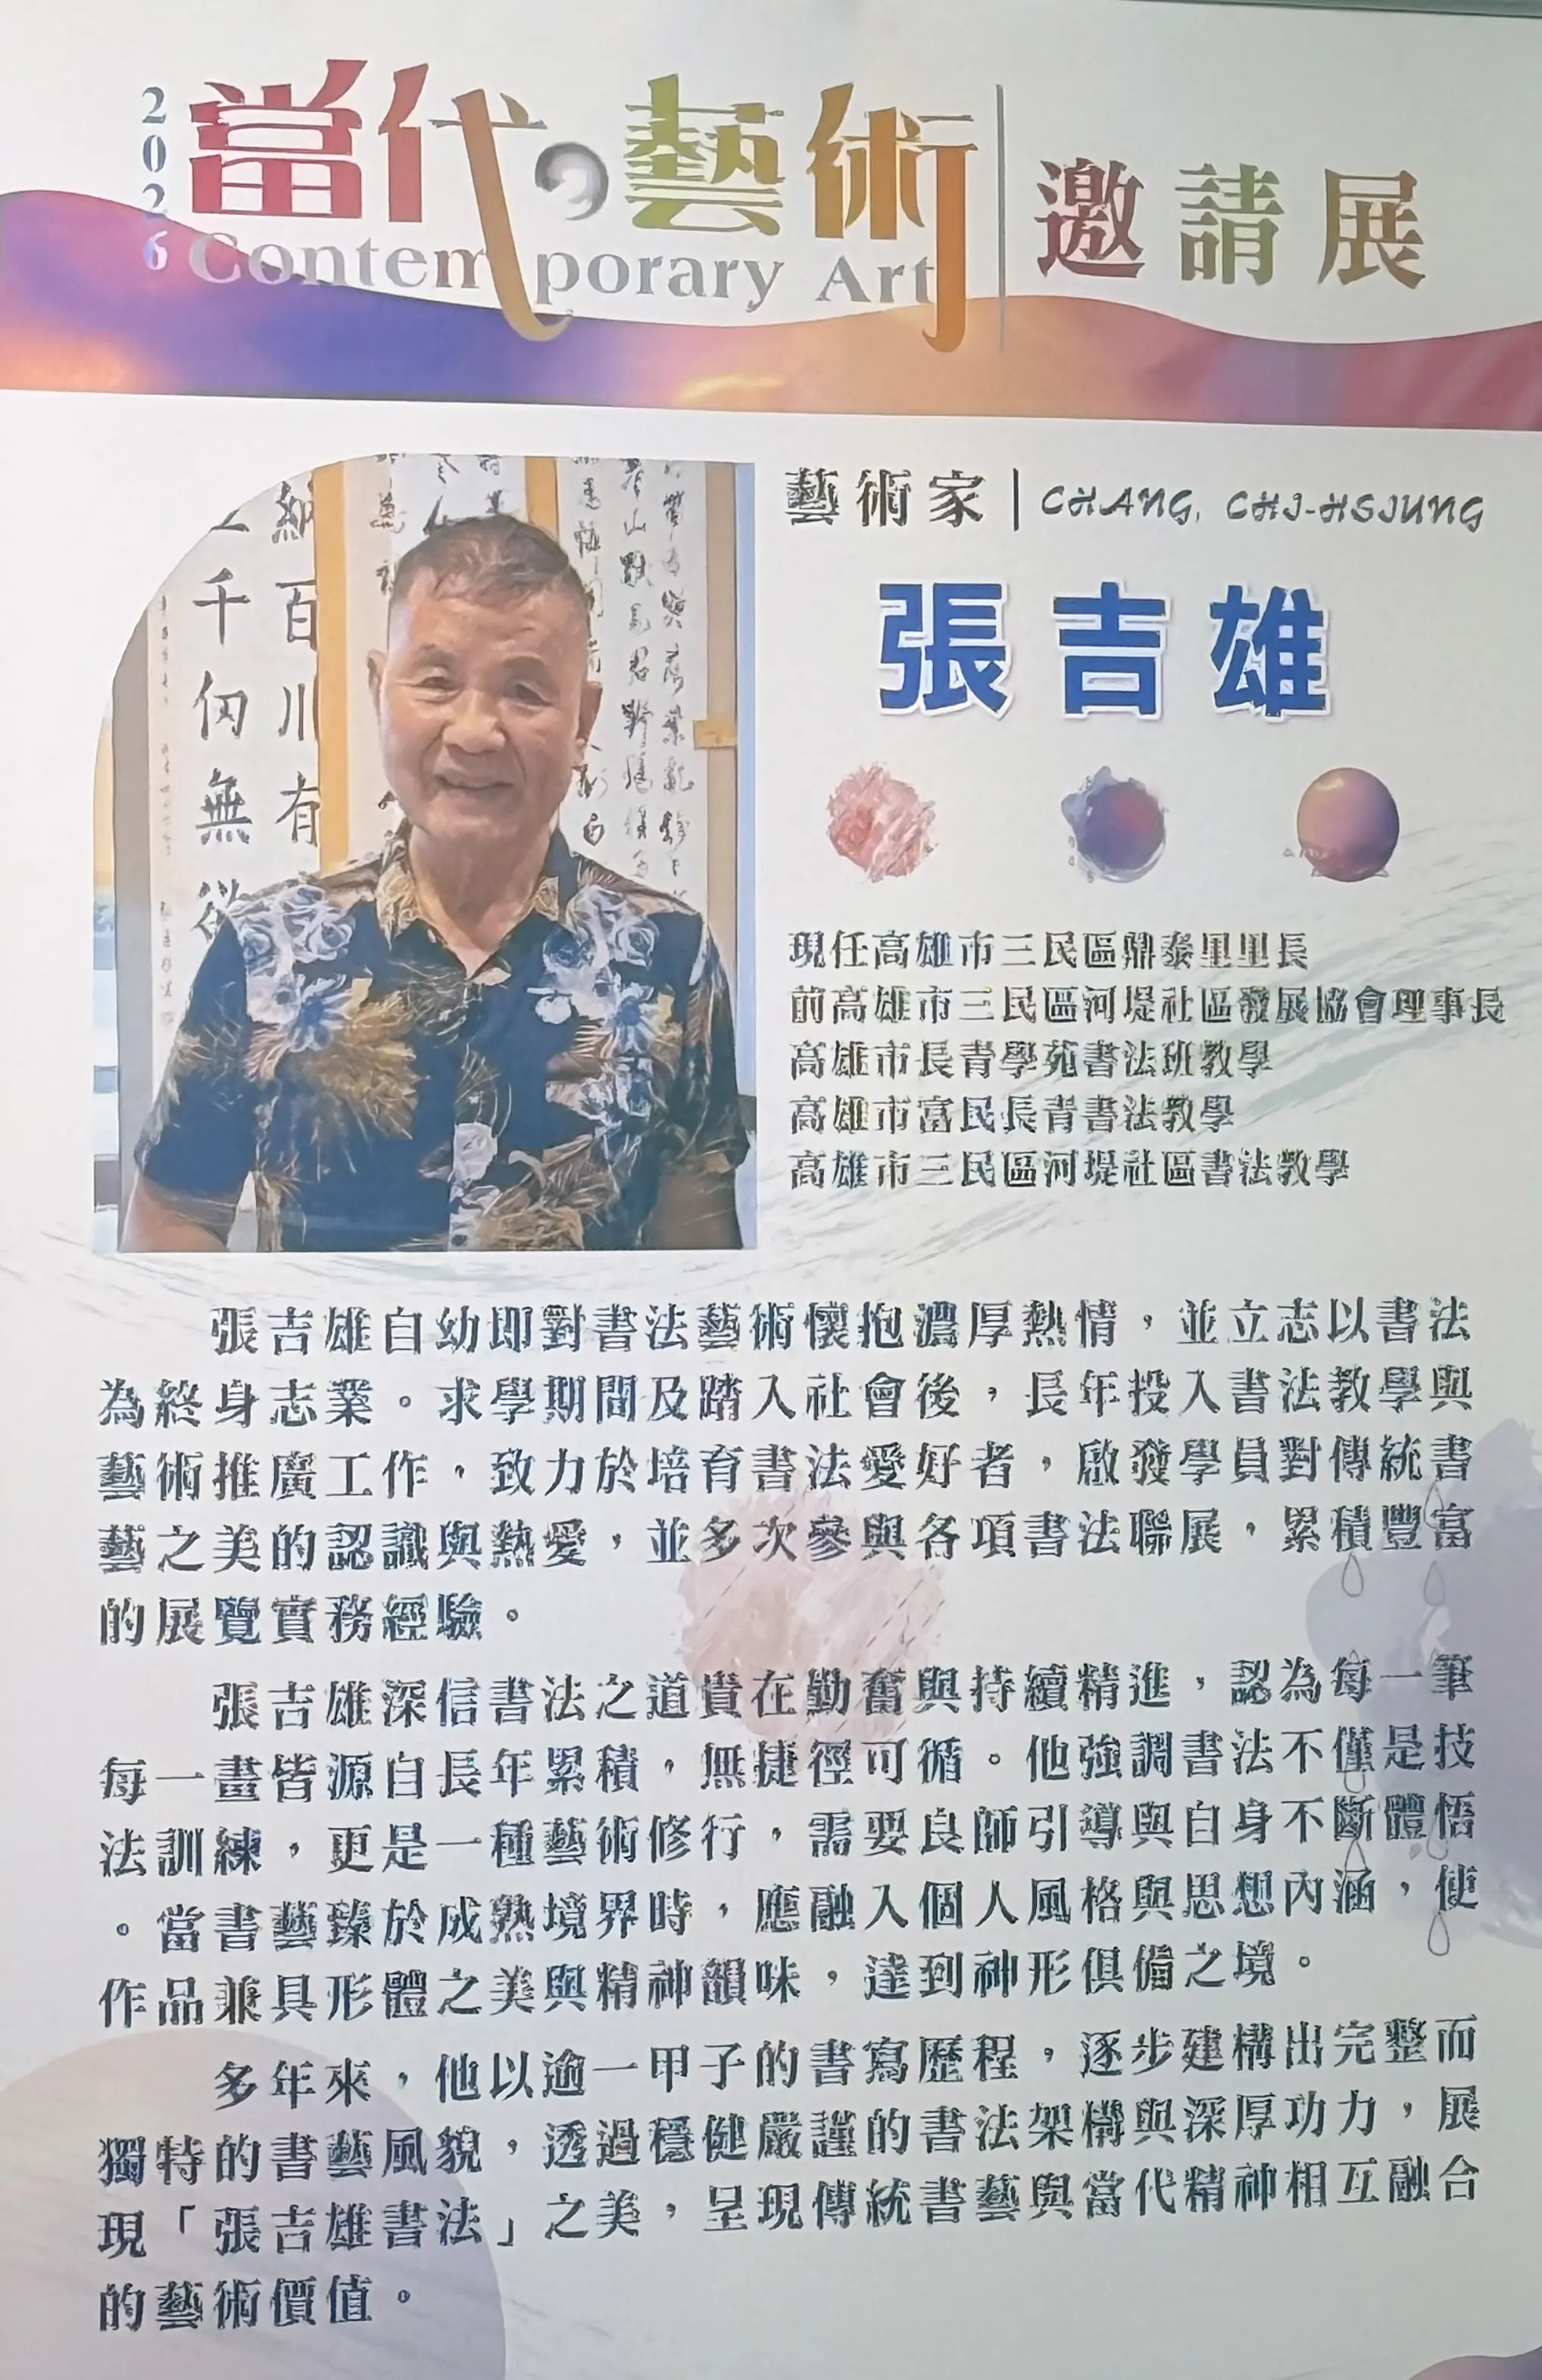 2026
當代藝術
Contemporary Art
邀請展
藝術家 | CHANG, CHI-HSIUNG
張吉雄
納百川有
千仞無欲
現任高雄市三民區鼎泰里里長
前高雄市三民區河堤社區發展協會理事長
高雄市長青學苑書法班教學
高雄市富民長青書法教學
高雄市三民區河堤社區書法教學
張吉雄自幼即對書法藝術懷抱濃厚熱情，並立志以書法
為終身志業。求學期間及踏入社會後，長年投入書法教學與
藝術推廣工作，致力於培育書法愛好者，啟發學員對傳統書
藝之美的認識與熱愛，並多次參與各項書法聯展，累積豐富
的展覽實務經驗。
張吉雄深信書法之道貴在勤奮與持續精進，認為每一筆
每一畫皆源自長年累積，無捷徑可循。他強調書法不僅是技
法訓練，更是一種藝術修行，需要良師引導與自身不斷體悟
。當書藝臻於成熟境界時，應融入個人風格與思想內涵，使
作品兼具形體之美與精神韻味，達到神形俱備之境。
多年來，他以逾一甲子的書寫歷程，逐步建構出完整而
獨特的書藝風貌，透過穩健嚴謹的書法架構與深厚功力，展
現「張吉雄書法」之美，呈現傳統書藝與當代精神相互融合
的藝術價值。